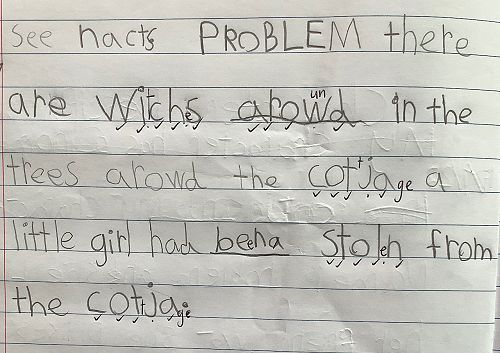 see nacts PROBLEM there
are witches arouwd in the
trees arowd the cottage a
little girl had beena stolen from
the cottage